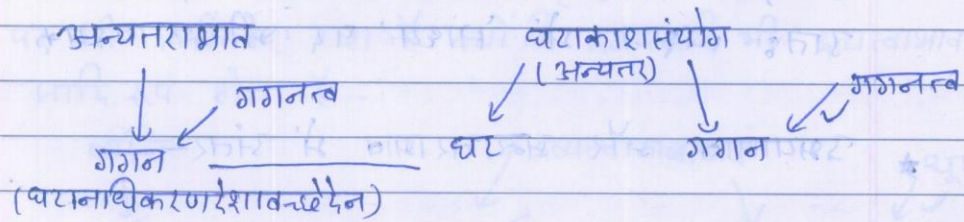 अन्यतराभाव घटाकाशसंयोग
(अन्यतर)
गगनत्व गगनत्व
गगन घट गगन
(घटानाधिकरणदेशावच्छेदेन)